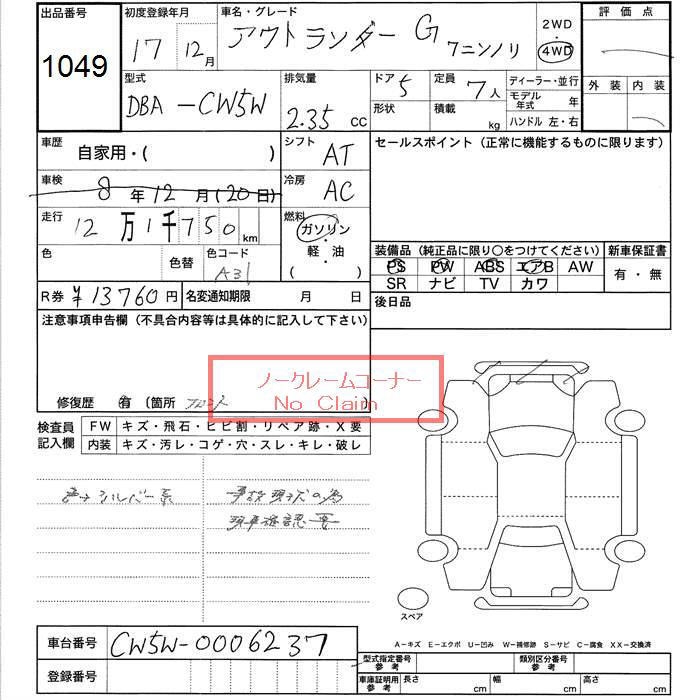 出品番号
1049
初度登録年月
17 12月
車名・グレード
アウトランダー G 7ニンノリ
2WD
4WD
評価点
外装 内装
型式
DBA-CW5W
排気量
2.35 CC
ドア 5
形状
定員 7人
積載 kg
ディーラー・並行
モデル年式 年
ハンドル 左・右
車歴
自家用・( )
シフト AT
セールスポイント(正常に機能するものに限ります)
車検 8年12月(20日)
冷房 AC
走行 12万1千750km
燃料
ガソリン
・
軽・油
( )
色
色替
色コード
A31
装備品(純正品に限り○をつけてください)
新車保証書
PS PW ABS エアB AW
SR ナビ TV カワ
有・無
R券 ¥13760円
名変通知期限 月 日
後日品
注意事項申告欄(不具合内容等は具体的に記入して下さい)
ノークレームコーナー
No Claim
修復歴 有 (箇所 フロント )
検査員記入欄
FW キズ・飛石・ヒビ割・リペア跡・X要
内装 キズ・汚レ・コゲ・穴・スレ・キレ・破レ
色→シルバー系
事故現状の為
現車確認要
スペア
A-キズ E-エクボ U-凹み W-補修跡 S-サビ C-腐食 XX-交換済
車台番号 CW5W-0006237
登録番号
型式指定番号 参考
類別区分番号 参考
車庫証明用 参考
長さ cm
幅 cm
高さ cm